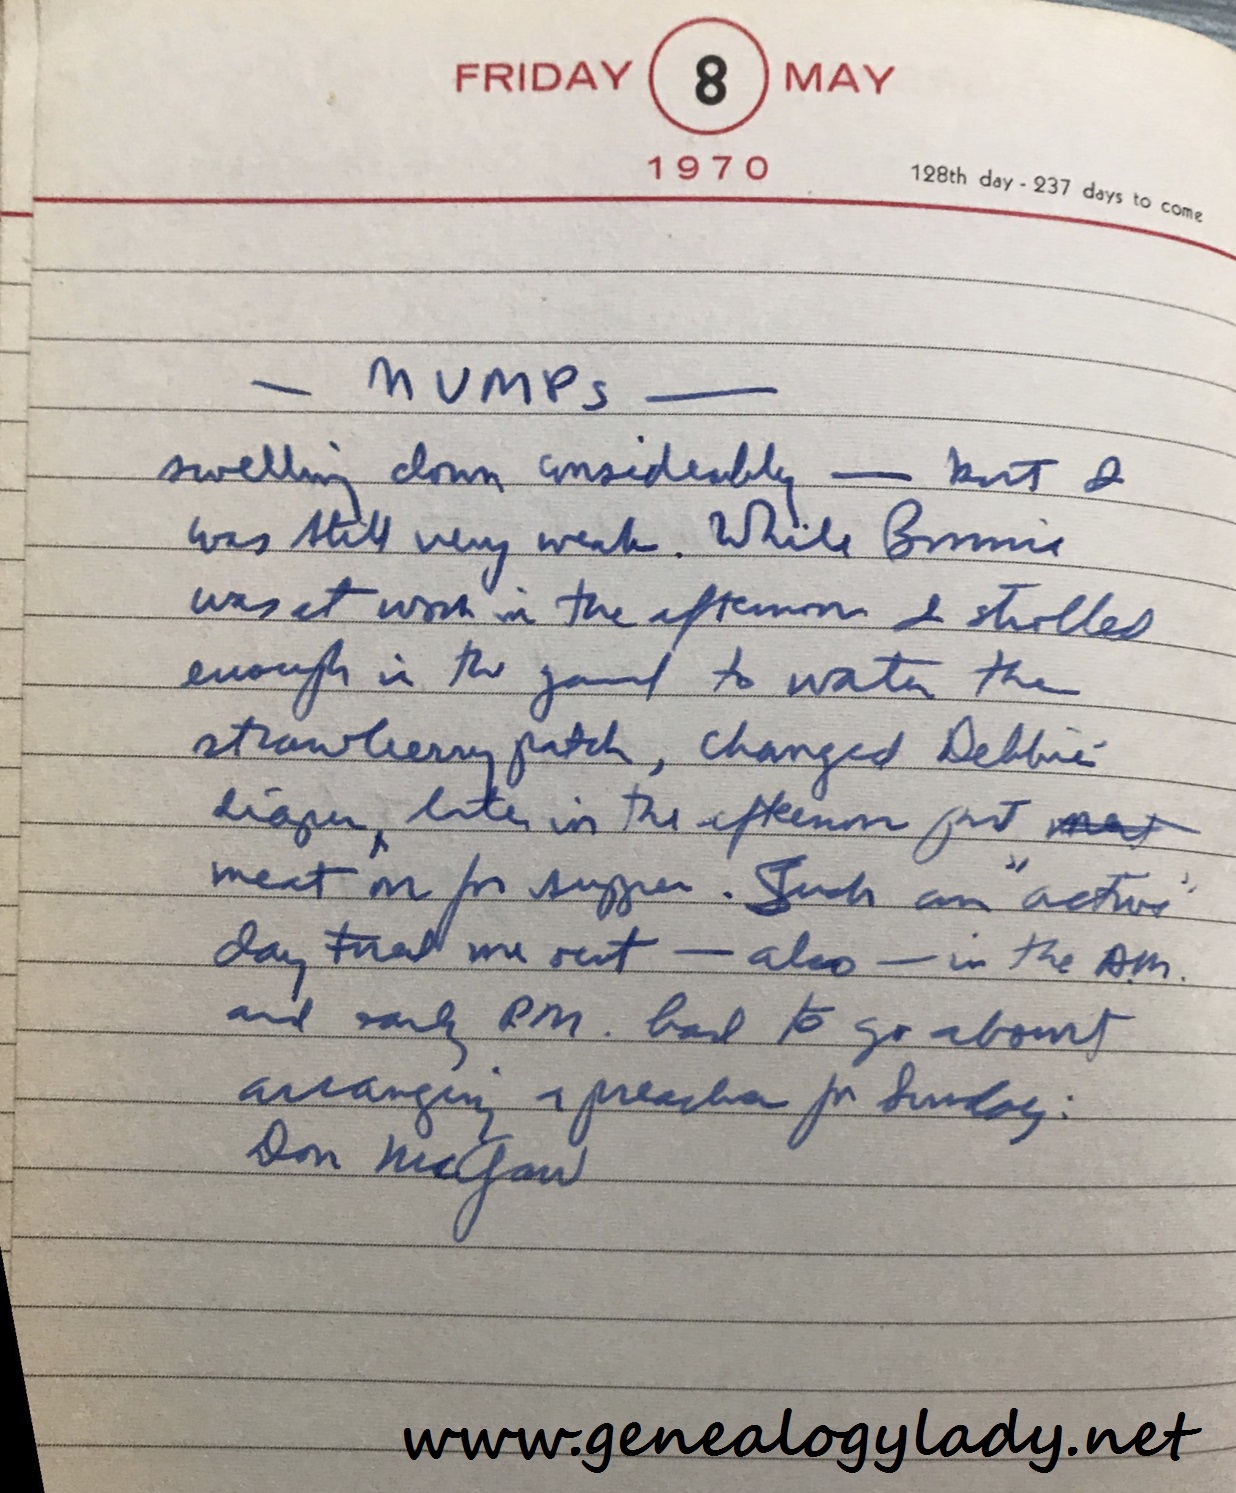 FRIDAY 8 MAY
1970
128th day - 237 days to come
— MUMPS —
swelling down considerably — but I
was still very weak. While Bonnie
was at work in the afternoon I strolled
enough in the yard to water the
strawberry patch, changed Debbie's
diaper, later in the afternoon put meat
meat on for supper. Such an "active"
day tired me out — also — in the A.M.
and early P.M. had to go about
arranging a preacher for Sunday:
Don McGaw
www.genealogylady.net